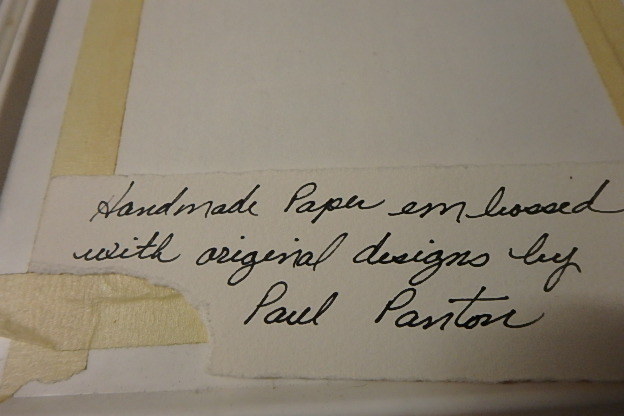 Handmade Paper embossed
with original designs by
Paul Panton